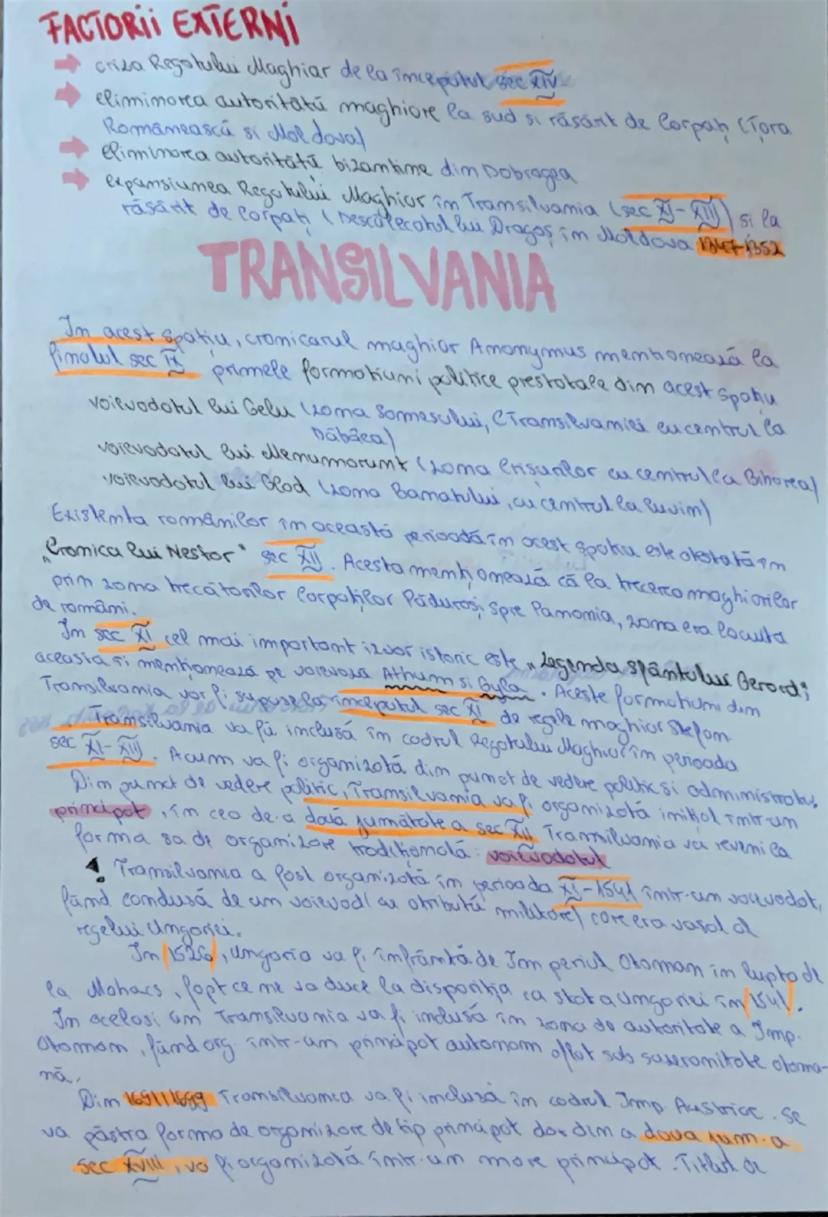 FACTORII EXTERNI
→ criza Regatului Maghiar de la începutul sec XIV
→ eliminarea autorității maghiare la sud si răsărit de Carpați (Țara
Românească si Moldova)
→ eliminarea autorității bizantine din Dobrogea
→ expansiunea Regatului Maghiar în Transilvania (sec XI-XIII) si la
răsărit de Carpați (Descălecatul lui Dragoș în Moldova 1347-1352
TRANSILVANIA
In acest spațiu, cronicarul maghiar Anonymus menționează la
finalul sec IX primele formațiuni politice prestatale din acest spațiu
voievodatul lui Gelu (zona Somesului, (Transilvaniei cu centrul la
Dăbâca)
voievodatul lui Menumorunt (zona Crișurilor cu centrul la Bihorea)
voievodatul lui Glad (zona Banatului, cu centrul la Cuvin)
Existenta românilor în această perioadă în acest spatiu este atestată în
"Cronica lui Nestor" sec XII. Acesta menționează că la trecerea maghiarilor
prin zona trecătorilor Carpaților Păduroși, spre Panonia, zona era locuita
de români.
In sec XI cel mai important izvor istoric este "Legenda sfântului Gerard;
aceasta si menționează pe voievozii Athum si Gyla. Aceste formatiuni din
Transilvania vor fi supuse la începutul sec XI de regele maghiar Stefan
Transilvania va fi inclusă în cadrul Regatului Maghiar în perioada
sec XI-XIII. Acum va fi organizată din punct de vedere politic si administrativ
Din punct de vedere politic, Transilvania va fi organizată inițial într-un
principat, în cea de-a doua jumătate a sec XII Transilvania va reveni la
forma sa de organizare tradițională: voievodatul
Transilvania a fost organizată în perioada XI-1541 într-un voievodat,
fiind condusă de un voievod (cu atributii militare) care era vasal al
regelui Ungariei.
In 1526, Ungaria va fi înfrântă de Imperiul Otoman în lupta de
la Mohacs, fapt ce ne va duce la dispariția ca stat a Ungariei în 1541.
In acelasi an Transilvania va fi inclusă în zona de autoritate a Imp.
Otoman, fiind org într-un principat autonom aflat sub suzeranitate otoma-
nă.
Din 1691/1699 Transilvania va fi inclusă în cadrul Imp Austriac. Se
va păstra forma de organizare de tip principat dar din a doua jum. a
sec XVIII, va fi organizată într-un mare principat. Titlul de